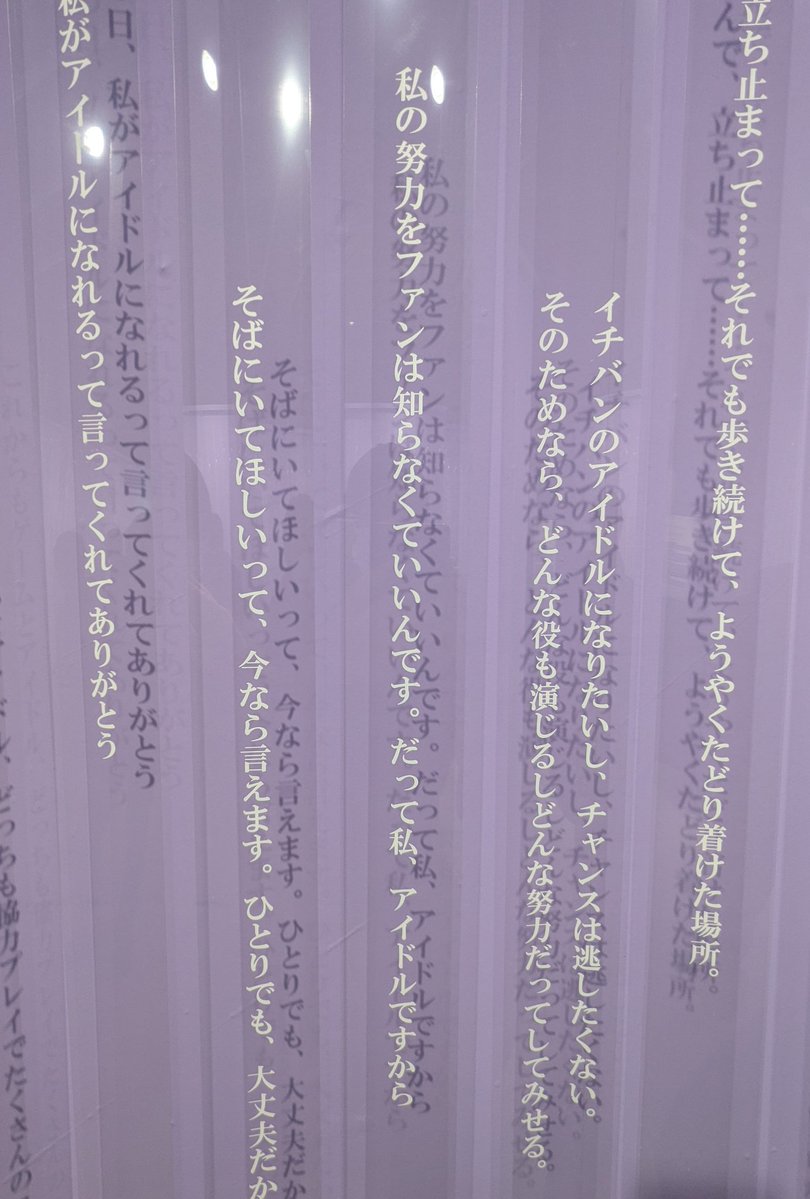 立ち止まって……それでも歩き続けて、ようやくたどり着けた場所。
イチバンのアイドルになりたいし、チャンスは逃したくない。
そのためなら、どんな役も演じるしどんな努力だってしてみせる。
私の努力をファンは知らなくていいんです。だって私、アイドルですから
そばにいてほしいって、今なら言えます。ひとりでも、大丈夫だか
私がアイドルになれるって言ってくれてありがとう
どっちも協力プレイでたくさんの